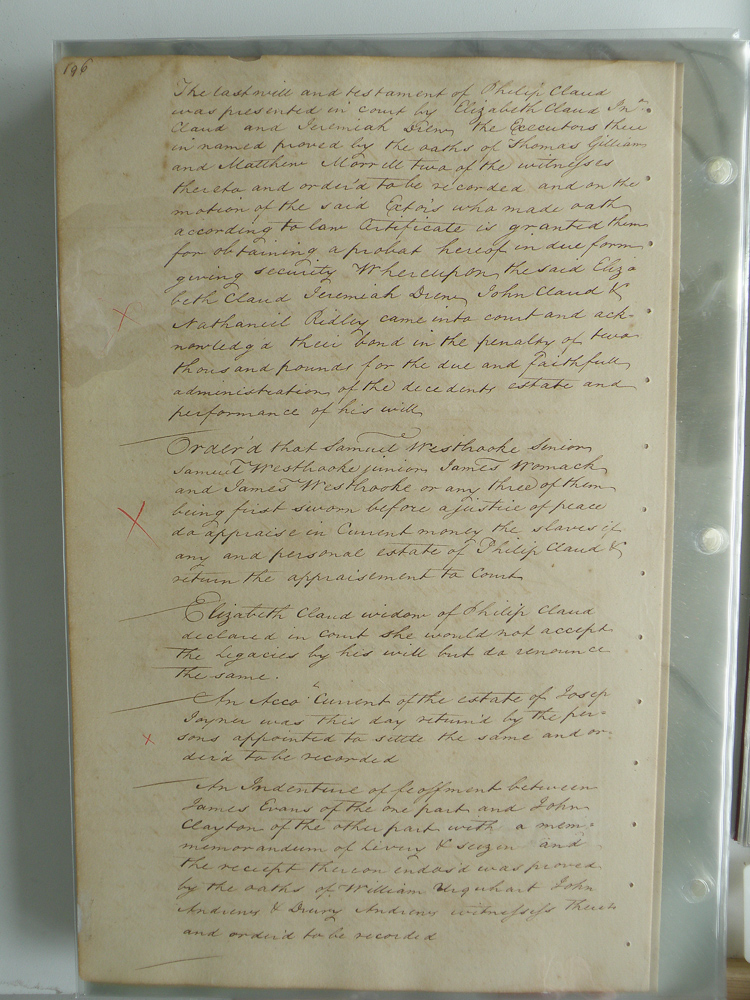 196
The last will and testament of Philip Claud
was presented in court by Elizabeth Claud Jnᵒ
Claud and Jeremiah Drew the Executors there
in named proved by the oaths of Thomas Gilliam
and Matthew Morrill two of the witnesses
thereto and order'd to be recorded and on the
motion of the said Extors who made oath
according to law Certificate is granted them
for obtaining a probat hereof in due form
giving security Whereupon the said Eliza
beth Claud Jeremiah Drew John Claud &
Nathaniel Ridley came into court and ack-
nowledg'd their bond in the penalty of two
thousand pounds for the due and faithfull
administration of the decedents estate and
performance of his will
Order'd that Samuel Westbrooke Senior
Samuel Westbrooke junior James Womack
and James Westbrooke or any three of them
being first sworn before a justice of peace
do appraise in Current money the slaves if
any and personal estate of Philip Claud &
return the appraisement to Court
Elizabeth Claud widow of Philip Claud
declared in court she would not accept
the Legacies by his will but do renounce
the same.
An Accoᵗ Current of the estate of Josep
Joyner was this day return'd by the per-
sons appointed to settle the same and or-
der'd to be recorded
An Indenture of feoffment between
James Evans of the one part and John
Clayton of the other part with a mem-
memorandum of Livery & seizen and
the receipt thereon endors'd was proved
by the oaths of William Urquhart John
Andrews & Drury Andrews witnesses thereto
and order'd to be recorded